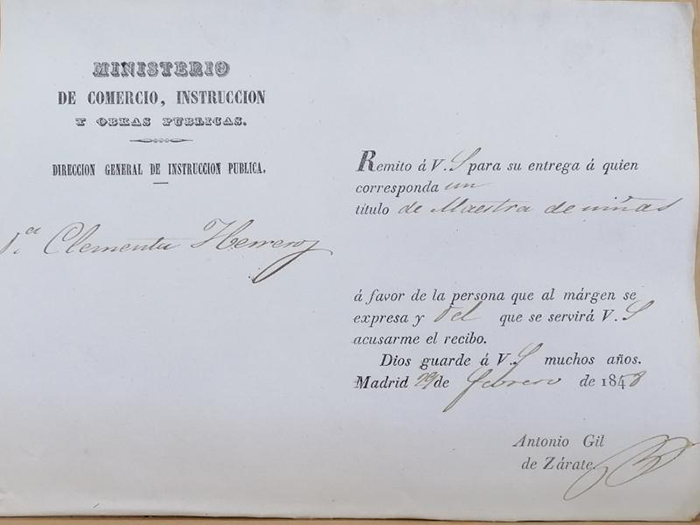 MINISTERIO
DE COMERCIO, INSTRUCCION
Y OBRAS PUBLICAS.
DIRECCION GENERAL DE INSTRUCCION PUBLICA.
D.ª Clementa Herrero
Remito á V.S para su entrega á quien
corresponda un
título de Maestra de niñas
á favor de la persona que al márgen se
expresa y del que se servirá V.S
acusarme el recibo.
Dios guarde á V.S muchos años.
Madrid 29 de febrero de 1848
Antonio Gil
de Zárate